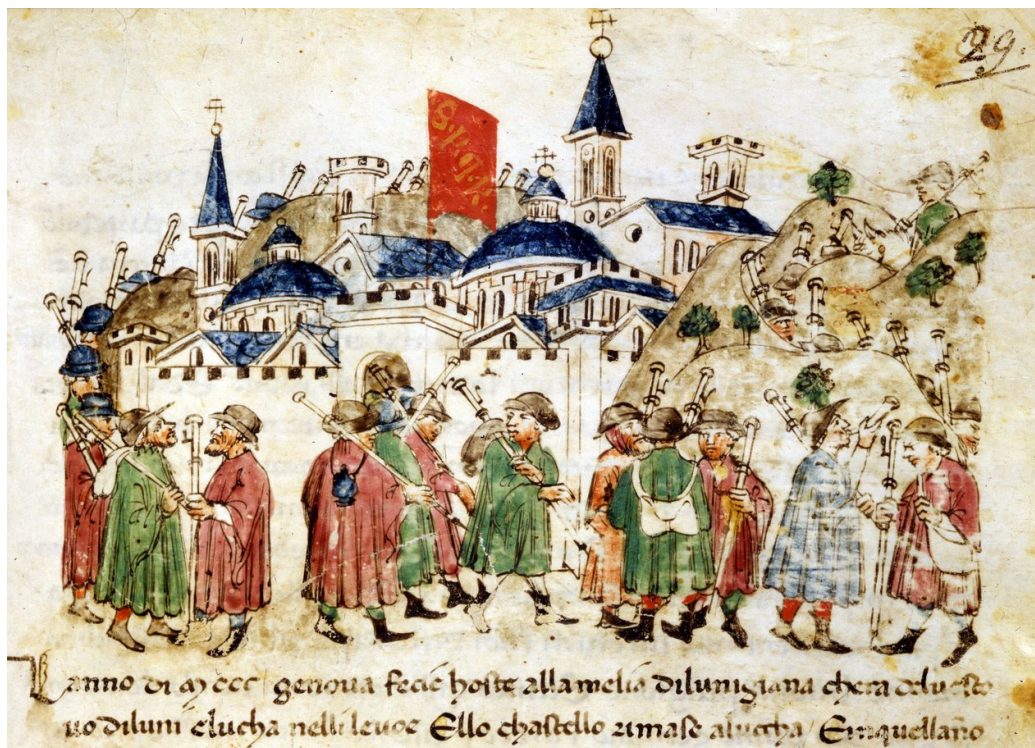 29.
S.P.Q.R.
Lanno di MCCC genova fecie hoste allamelia dilunigiana chera delvesco
vo diluni Elucha nellileuoe Ello chastello rimase alucha / Einquellano